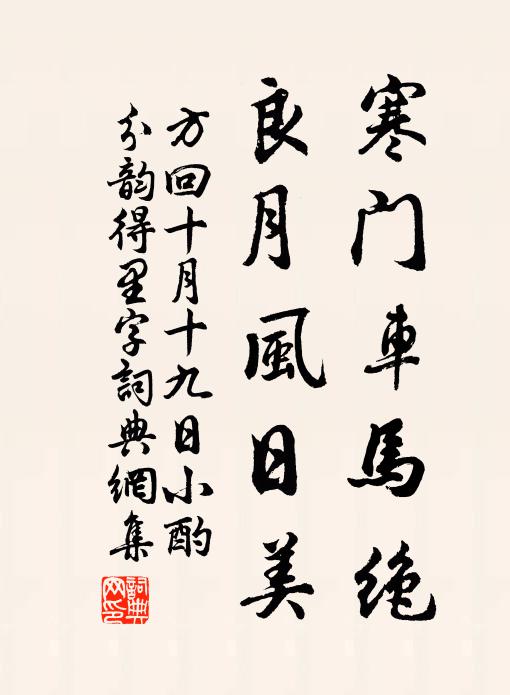 寒门車馬絶
良月風日美
方回十月十九日小酌
分韵得里字詞典網集
詞典網印